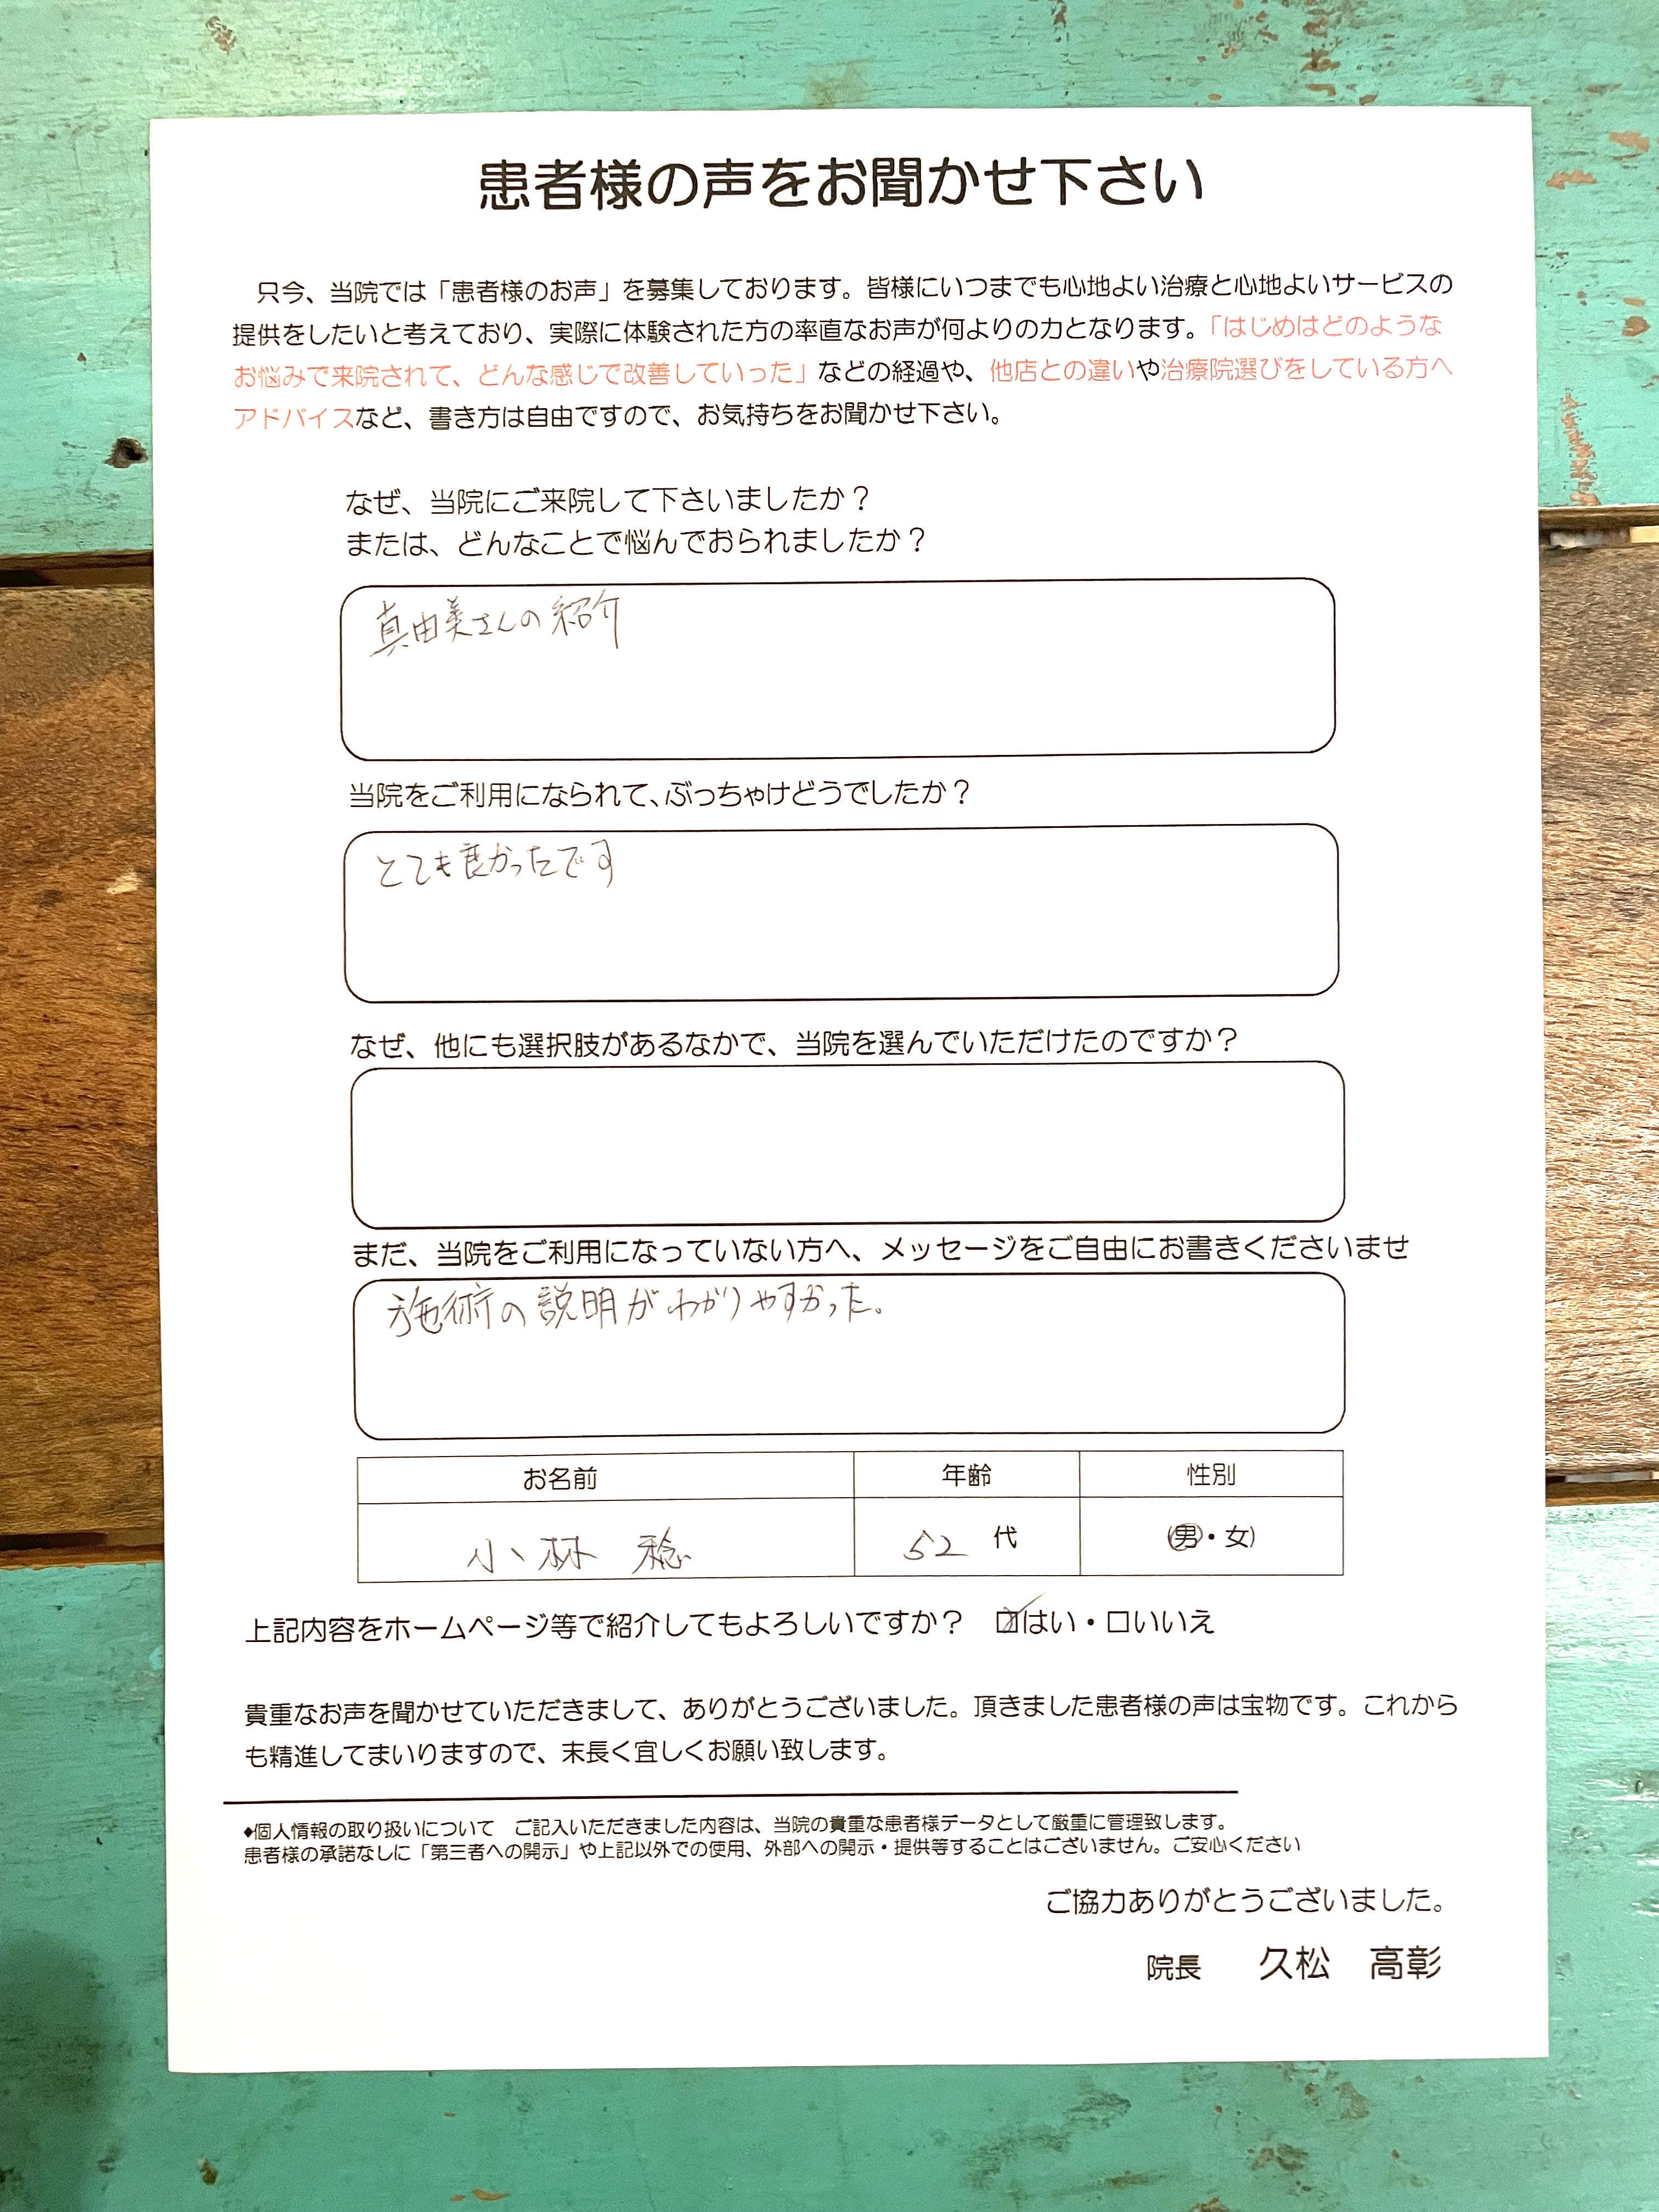 患者様の声をお聞かせ下さい
只今、当院では「患者様のお声」を募集しております。皆様にいつまでも心地よい治療と心地よいサービスの
提供をしたいと考えており、実際に体験された方の率直なお声が何よりの力となります。「はじめはどのような
お悩みで来院されて、どんな感じで改善していった」などの経過や、他店との違いや治療院選びをしている方へ
アドバイスなど、書き方は自由ですので、お気持ちをお聞かせ下さい。
なぜ、当院にご来院して下さいましたか？
または、どんなことで悩んでおられましたか？
真由美さんの紹介
当院をご利用になられて、ぶっちゃけどうでしたか？
とても良かったです
なぜ、他にも選択肢があるなかで、当院を選んでいただけたのですか？
まだ、当院をご利用になっていない方へ、メッセージをご自由にお書きくださいませ
施術の説明がわかりやすかった。
お名前 年齢 性別
小林 稔 52 代 (男・女)
上記内容をホームページ等で紹介してもよろしいですか？ ☑はい・□いいえ
貴重なお声を聞かせていただきまして、ありがとうございました。頂きました患者様の声は宝物です。これから
も精進してまいりますので、末長く宜しくお願い致します。
◆個人情報の取り扱いについて ご記入いただきました内容は、当院の貴重な患者様データとして厳重に管理致します。
患者様の承諾なしに「第三者への開示」や上記以外での使用、外部への開示・提供等することはございません。ご安心ください
ご協力ありがとうございました。
院長 久松 高彰